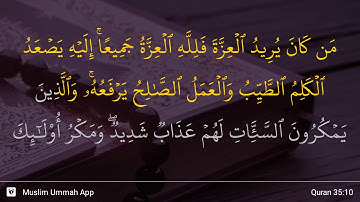 مَن كَانَ يُرِيدُ ٱلْعِزَّةَ فَلِلَّهِ ٱلْعِزَّةُ جَمِيعًا ۚ إِلَيْهِ يَصْعَدُ
ٱلْكَلِمُ ٱلطَّيِّبُ وَٱلْعَمَلُ ٱلصَّـٰلِحُ يَرْفَعُهُۥ ۚ وَٱلَّذِينَ
يَمْكُرُونَ ٱلسَّيِّـَٔاتِ لَهُمْ عَذَابٌ شَدِيدٌ ۖ وَمَكْرُ أُو۟لَـٰٓئِكَ
Muslim Ummah App
Quran 35:10